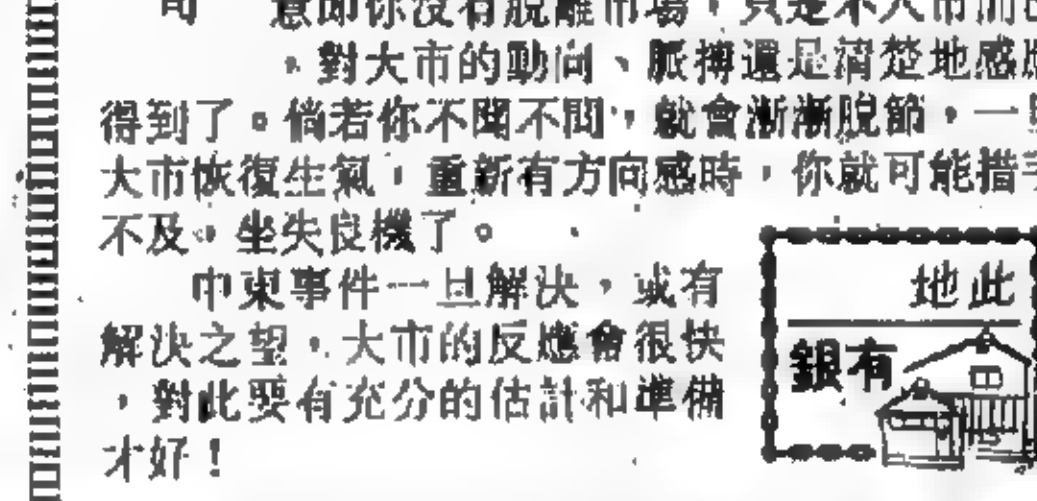 意即你沒有脫離市場，只是不入市而已
。對大市的動向、脈搏還是清楚地感應
得到了。倘若你不聞不問，就會漸漸脫節，一旦
大市恢復生氣，重新有方向感時，你就可能措手
不及，坐失良機了。
中東事件一旦解決，或有
解決之望，大市的反應會很快
，對此要有充分的估計和準備
才好！
此地
有銀